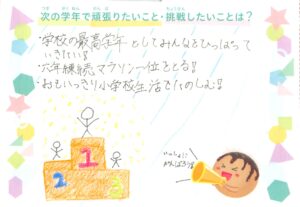 次の学年で頑張りたいこと・挑戦したいことは？
・学校の最高学年としてみんなをひっぱって
いきたい!!
・六年練続マラソン一位をとる!!
・おもいっきり小学校生活をたのしむ!!
1
2
3
いっしょに
がんばろう!!